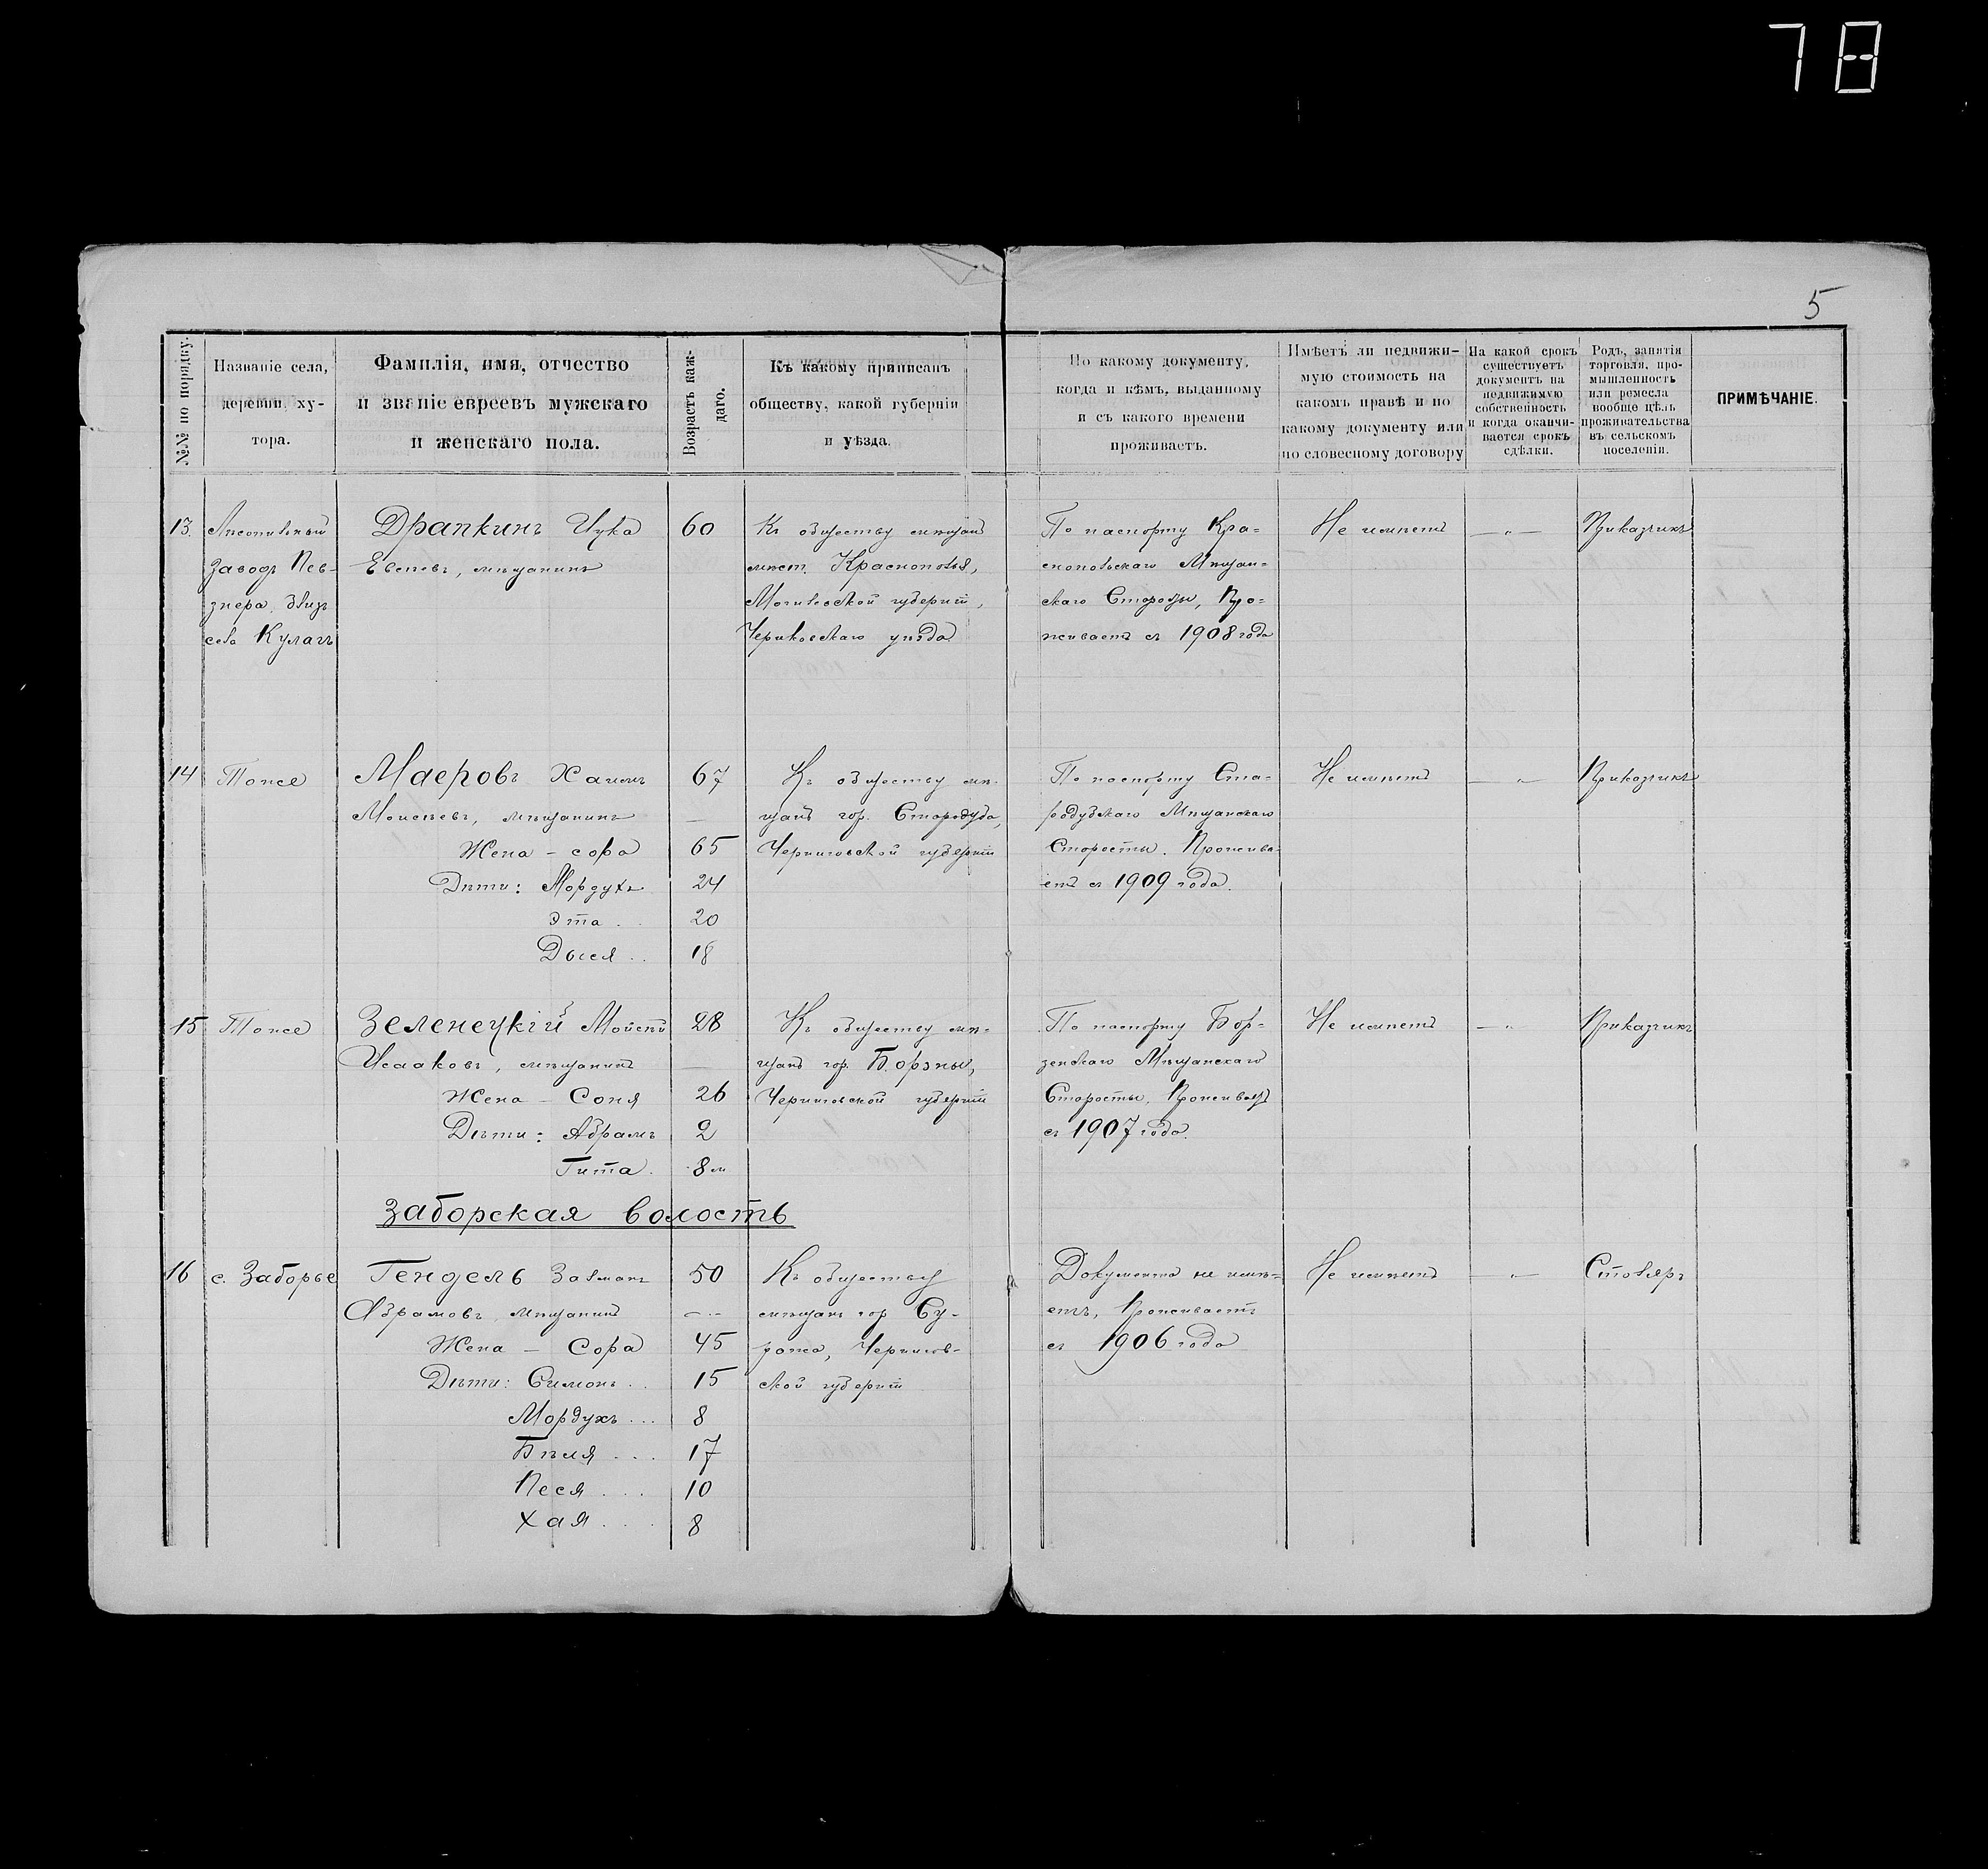 78
5
№№ по порядку.
Названіе села,
деревни, ху-
тора.
Фамилія, имя, отчество
и званіе евреевъ мужскаго
и женскаго пола.
Возрастъ каж-
даго.
Къ какому приписанъ
обществу, какой губерніи
и уѣзда.
По какому документу,
когда и кѣмъ, выданному
и съ какого времени
проживаетъ.
Имѣетъ ли недвижи-
мую стоимость на
какомъ правѣ и по
какому документу или
по словесному договору
На какой срокъ
существуетъ
документъ на
недвижимую
собственность
и когда оканчи-
вается срокъ
сдѣлки.
Родъ, занятія
торговля, про-
мышленность
или ремесла
вообще цѣль
проживательства
въ сельскомъ
поселеніи.
ПРИМѢЧАНІЕ.
13.
Лѣсопильный
заводъ Пев-
знера, близъ
села Кулагъ
Драпкинъ
Евсѣевъ, мѣщанинъ
60
Къ обществу мѣщан
мѣст. Краснополья,
Могилевской губерніи,
Чериковскаго уѣзда
По паспорту Кра-
снопольскаго Мѣщан-
скаго Старосты, Про-
живаетъ съ 1908 года
Не имѣетъ
—„—
Приказчикъ
14
Тоже
Маеровъ Хаимъ
Моисѣевъ, мѣщанинъ
Жена – Сора
Дѣти: Мордухъ
Эта . .
Дыся . .
67
—
65
24
20
18
Къ обществу мѣ-
щанъ гор. Стародуба,
Черниговской губерніи
По паспорту Ста-
родубскаго Мѣщанскаго
Старосты. Прожива-
етъ съ 1909 года.
Не имѣетъ
—„
Приказчикъ
15
Тоже
Зеленецкій Мойсѣй
Исааковъ, мѣщанинъ
Жена – Соня
Дѣти: Абрамъ
Гита .
28
—
26
2
8 м
Къ обществу мѣ-
щанъ гор. Борзны,
Черниговской губерніи
По паспорту Бор-
зенскаго Мѣщанскаго
Старосты, Проживаетъ
съ 1907 года.
Не имѣетъ
—„
Приказчикъ
Заборская волость
16
с. Заборье
Гендель Залманъ
Абрамовъ, мѣщанинъ
Жена – Сора
Дѣти: Симонъ . .
Мордухъ . . .
Бѣля . . .
Песя . . .
Хая . . .
50
—
45
15
8
17
10
8
Къ обществу
мѣщанъ гор Су-
ража, Чернигов-
ской губерніи
Документа не имѣ-
етъ, Проживаетъ
съ 1906 года
Не имѣетъ
—„—
Столяръ